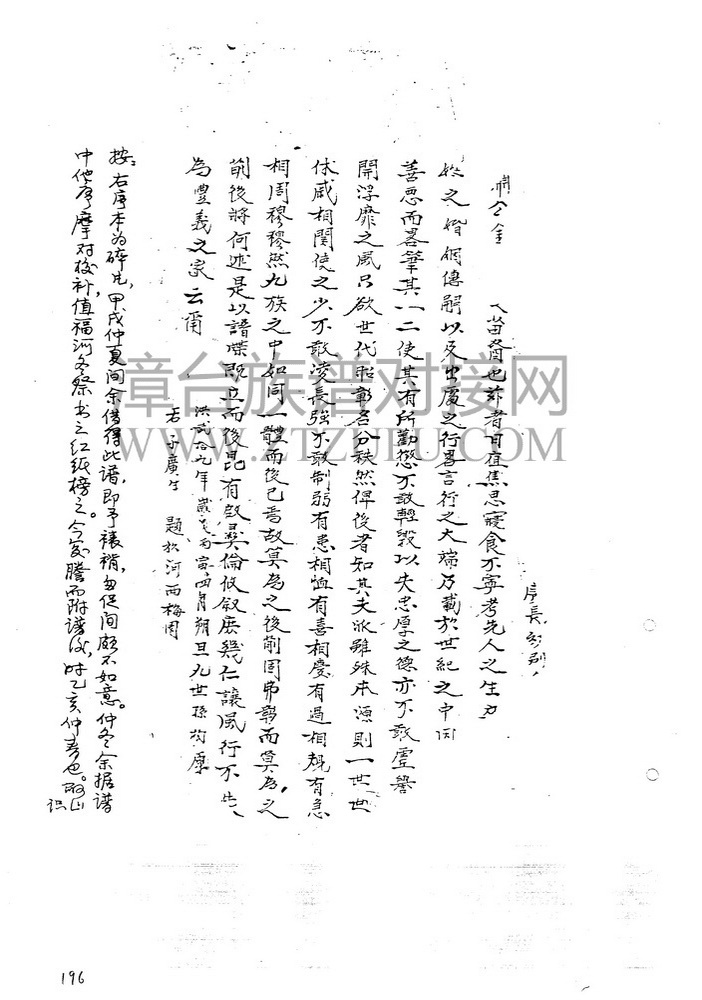 序長幼別
苗裔也茲者日夜焦思寢食不寧考先人之生
之婚姻傳嗣以及出處之行善言行之大端乃載於世紀之中因
善惡而畧筆其一二使其有所勸懲不敢輕毀以失忠厚之德亦不敢虛譽
開浮靡之風只欲世代昭彰名分秩然俾後者知其支派雖殊本源則一世世
休戚相関使之少不敢凌長強不敢制弱有患相恤有喜相慶有過相規有急
相周穆穆然九族之中如同一體而後已焉故莫為之後前固弗彰而莫為之
前後將何述是以譜牒既立而後昆有啟彝倫攸叙庶幾仁讓風行不失
為豐義之家云爾
洪武拾九年歲次丙寅四月朔旦九世孫
題於河西梅園
按:右序本為碎片,甲戌仲夏间余借得此譜,即予裱褙,匆促间頗不如意。仲冬余据譜
中他序摩对校补,值福河冬祭书之红纸榜之。今謄而附譜後,时乙亥仲春也。
识
196
章台族普对接网
WWW.ZTZUPU.COM